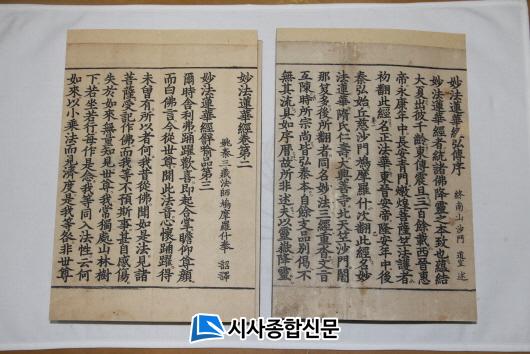 妙法蓮華經弘傳序
終南山沙門 道宣 述
妙法蓮華經者統諸佛降靈之本致也蘊結
大夏出彼千齡東傳震旦三百餘載西晉惠
帝永康年中長安青門燉煌菩薩竺法護者
初翻此經名正法華東晉安帝隆安年中後
秦弘始丘慈沙門鳩摩羅什次翻此經名妙
法蓮華隋氏仁壽大興善寺北天竺沙門闍
那笈多後所翻者同名妙法三經重沓文旨
互陳時所宗尚皆弘秦本自餘支品別偈不
無其流具如序曆故所非述夫以靈嶽降靈
妙法蓮華經卷第二
姚秦三藏法師鳩摩羅什奉 詔譯
妙法蓮華經譬喩品第三
爾時舍利弗踊躍歡喜即起合掌瞻仰尊顔
而白佛言今從世尊聞此法音心懷踊躍得
未曾有所以者何我昔從佛聞如是法見諸
菩薩受記作佛而我等不預斯事甚自感傷
失於如來無量知見世尊我常獨處山林樹
下若坐若行每作是念我等同入法性云何
如來以小乘法而見濟度是我等咎非世尊
시사종합신문